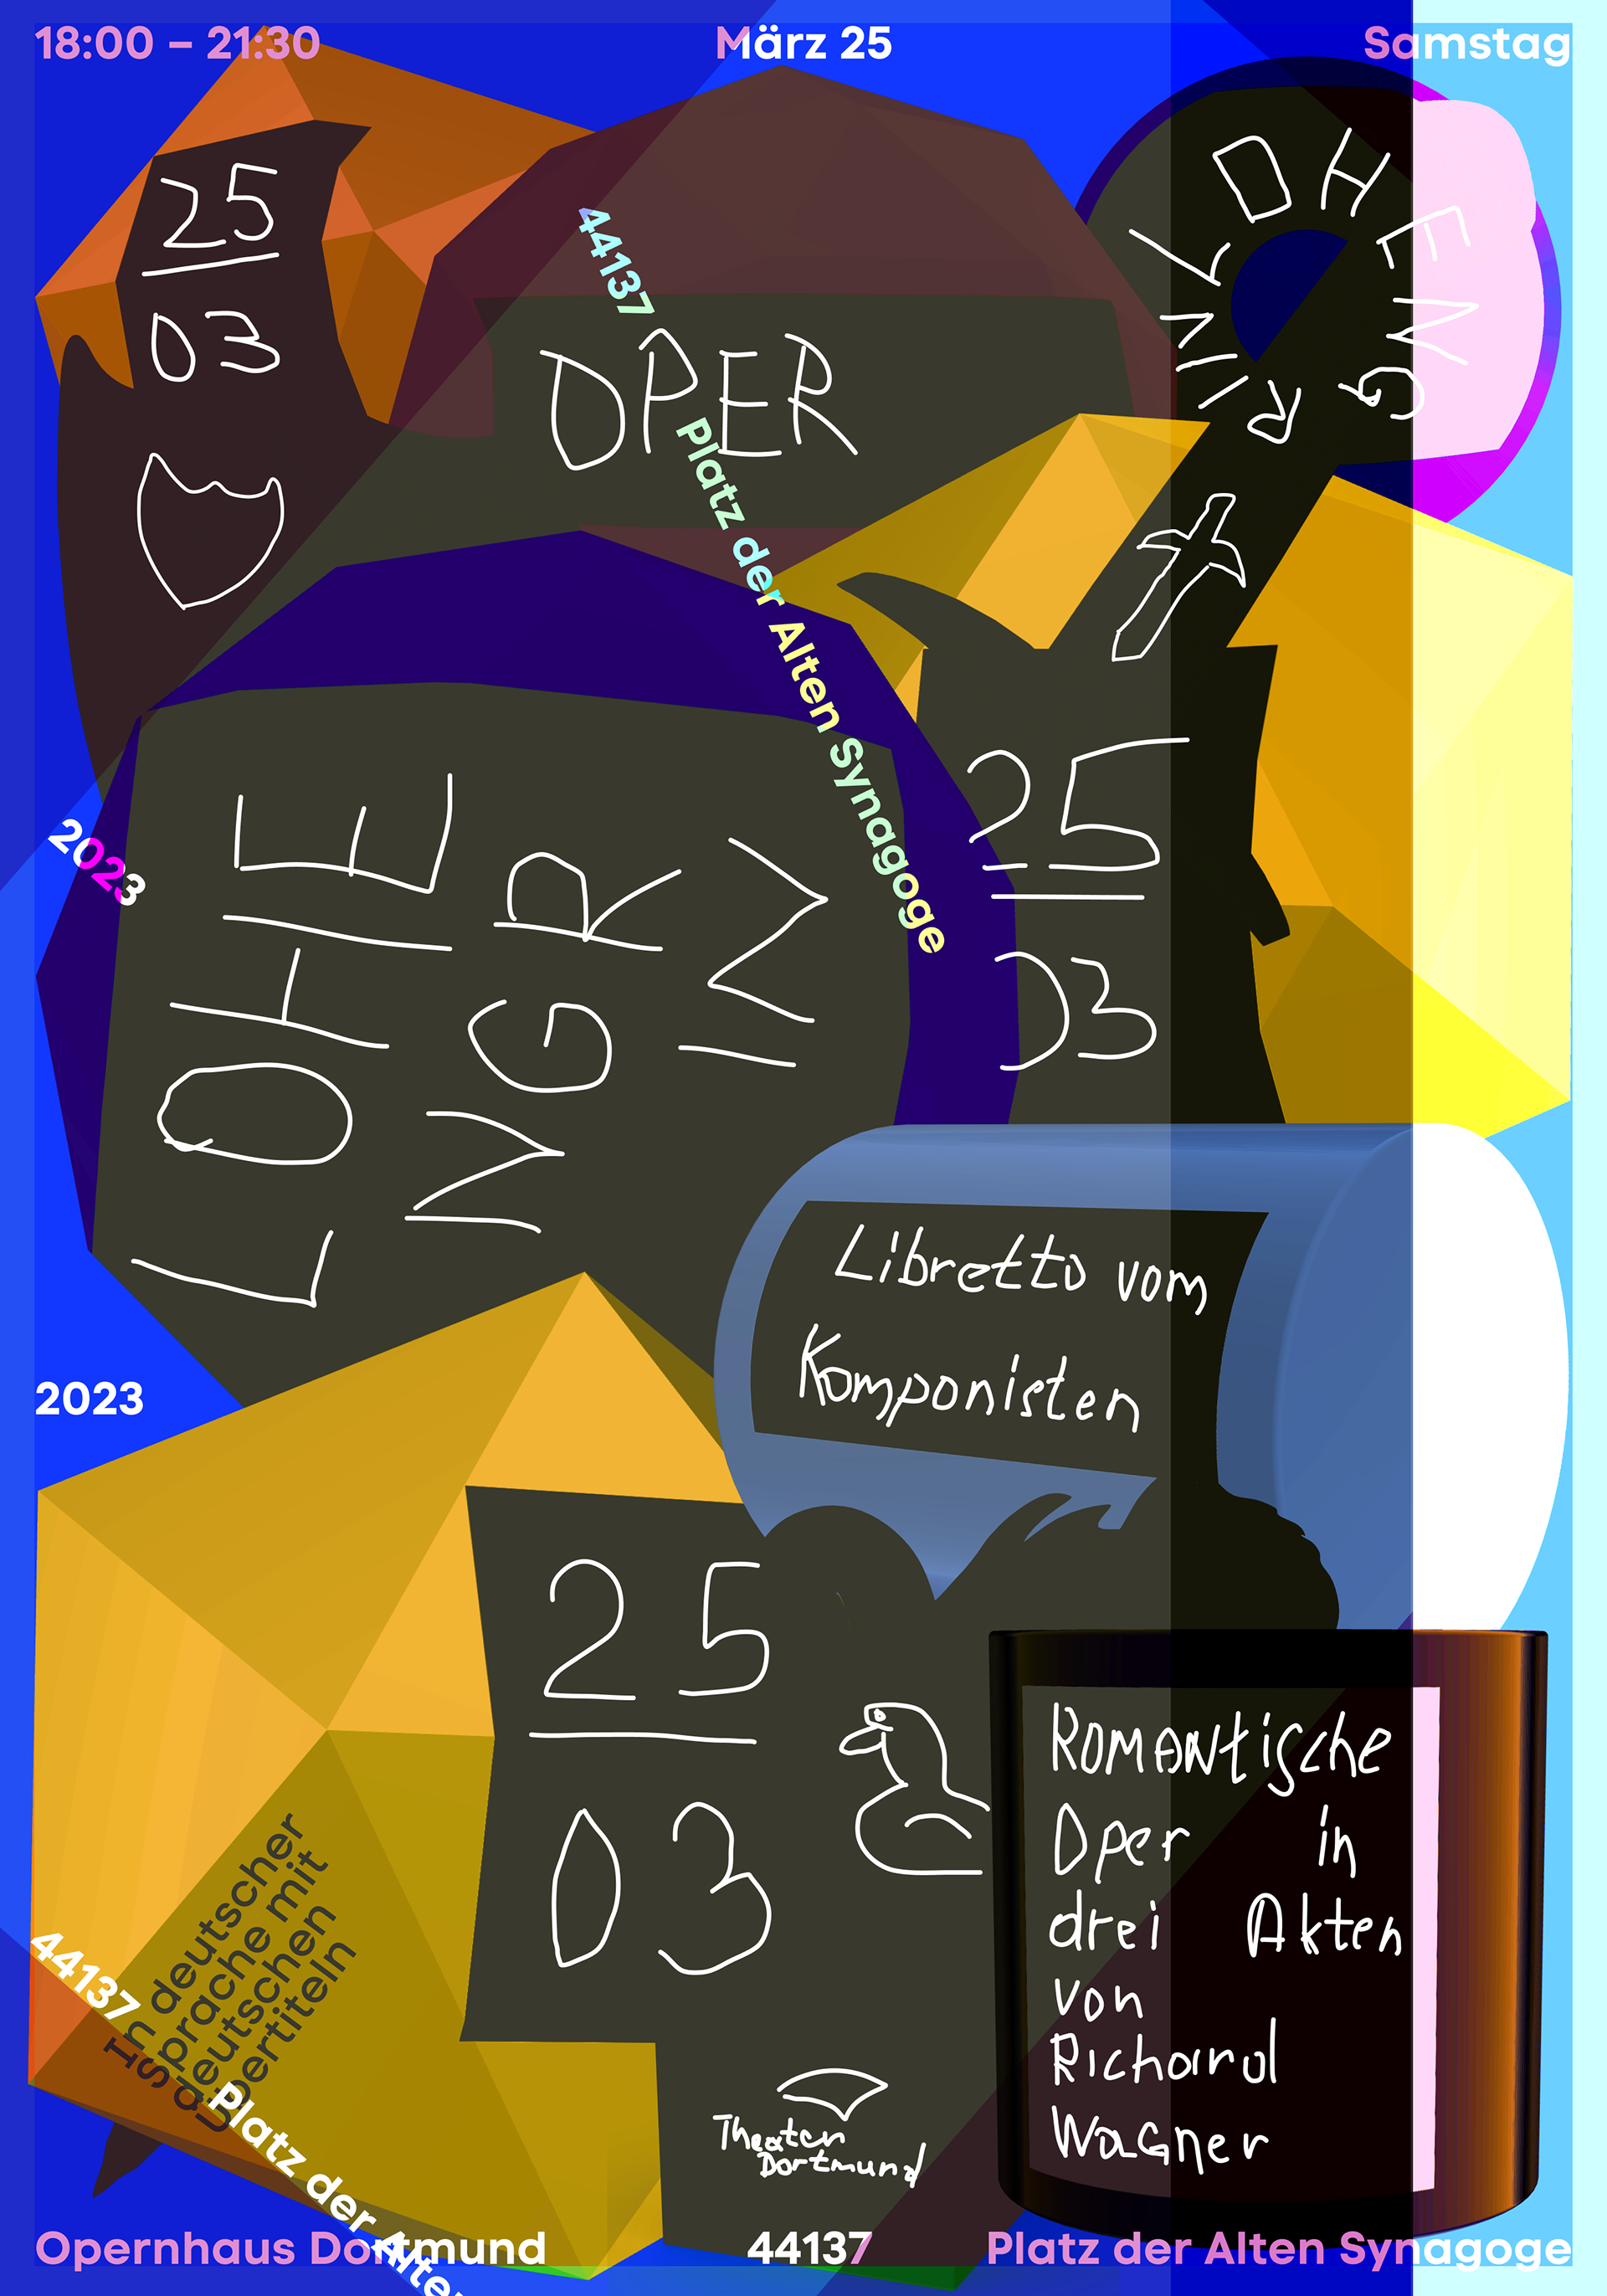 18:00 – 21:30
März 25
Samstag
25
03
44137
Platz der Alten Synagoge
OPER
LOHENGRIN
2023
LOHE
NGR
IN
25
03
Libretto vom
Komponisten
2023
25
03
In deutscher
Sprache mit
deutschen
Übertiteln
44137
Platz der Alten
Romantische
Oper in
drei Akten
von
Richard
Wagner
Theater
Dortmund
Opernhaus Dortmund
44137
Platz der Alten Synagoge